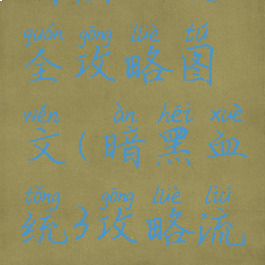 quán gōng lüè tú
全攻略图
wén àn hēi xuè
文(暗黑血
tǒng gōng lüè liú
统3攻略流